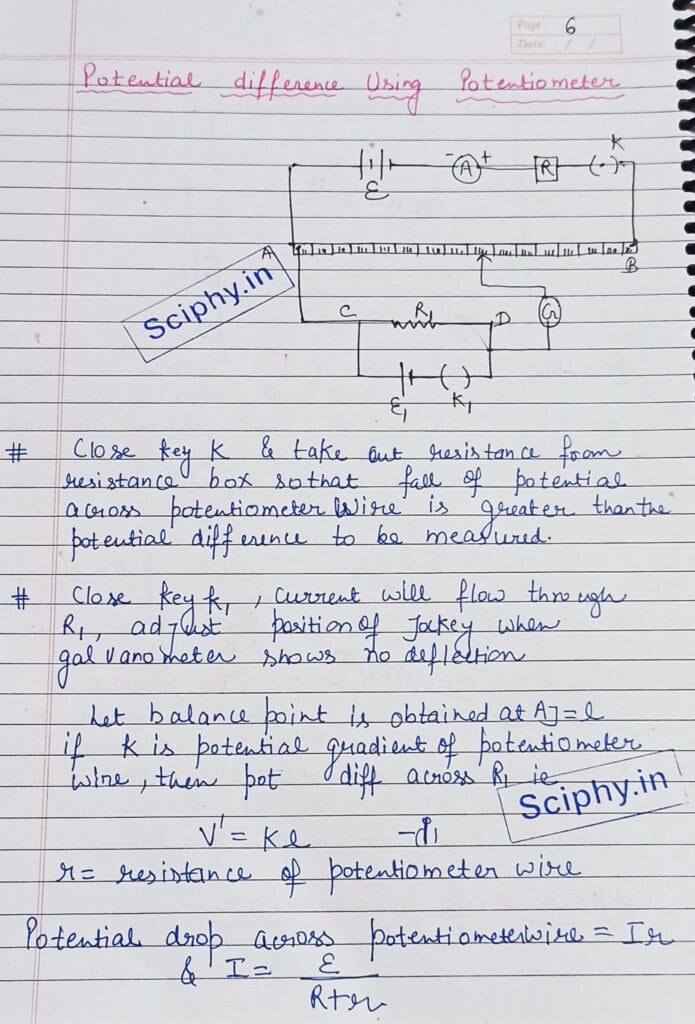 Page 6
Date / /
Potential difference Using Potentiometer
K
- A + R (·)
ε
A
B
Sciphy.in
C R1 D G
ε1 K1
# Close key K & take out resistance from
resistance box sothat fall of potential
across potentiometer Wire is greater than the
potential difference to be measured.
# Close key k1, current will flow through
R1, adjust position of Jockey when
galvanometer shows no deflection
Let balance point is obtained at AJ=l
if K is potential gradient of potentiometer
wire, then pot diff across R1 ie
Sciphy.in
V' = Kl
r = resistance of potentiometer wire
Potential drop across potentiometerwire = Ir
& I = ε
R+r